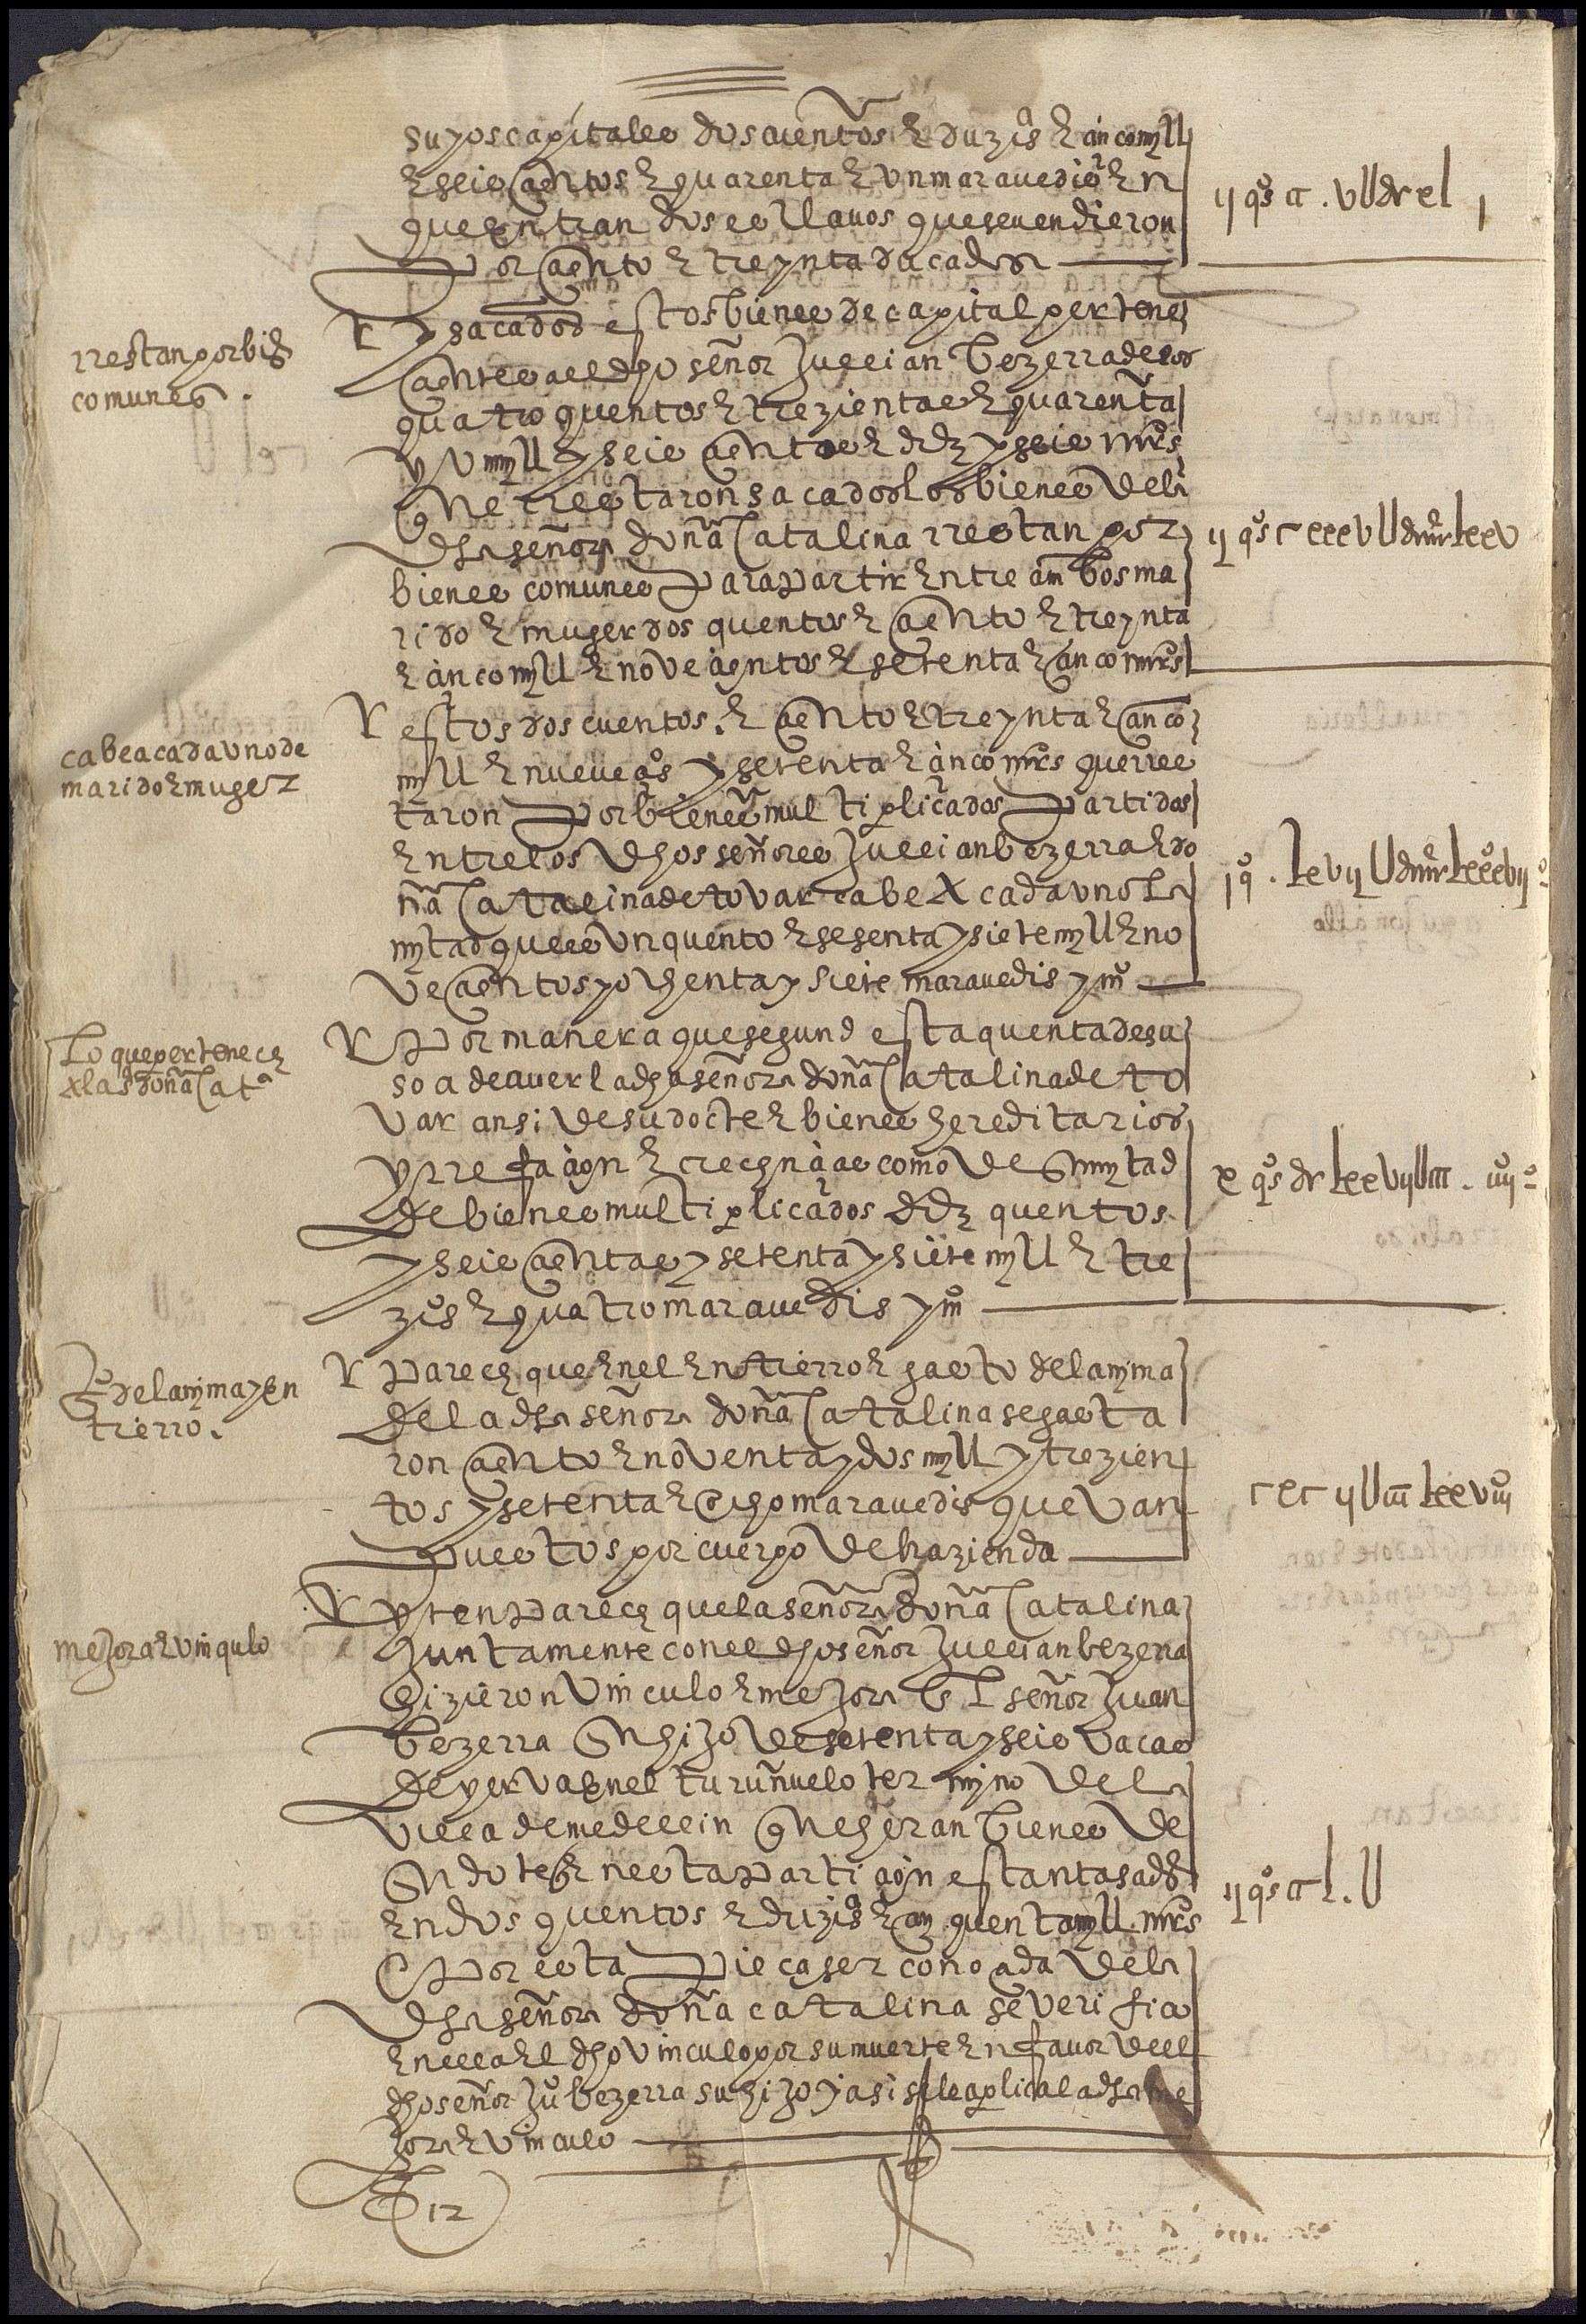 suyos capitales dos cientos E duzis E cinco myll
E seis cientos E quarenta E un maravedis En
que Entran dos esclavos que se vendieron
por ciento E treynta ducados
ij qos cc . vU dc xl j
rrestan por bis
comunes .
y sacados estos bienes de capital pertene
cientes al dho señor Juлian bezerra de los
quatro quentos E trezientas E quarenta
y U myll y seis cientos E diez y seis mrs
que rrestaron sacados los bienes de la
dha señora doña Catalina rrestan por
bienes comunes para partir Entre ambos ma
rido E muger dos quentos E ciento E treynta
E cinco myll E noveçientos E setenta E cinco mrs
ij qos c xxxv U dcccc lxxv
cabe a cada uno de
marido E muger
estos dos cuentos . E ciento E treynta E cinco
myll E nueve cos y setenta E cinco mrs que rres
taron por bienes multiplicados partidos
Entre los dhos señores Julian bezerra E do
ña Catalina de tovar cabe A cada uno La
mytad que es un quento E sesenta y siete myll E no
ve cientos y ochenta y siete maravedis y mo
j qo . lxvij U dcccc lxxxvij o
Lo que pertenece
A la sa doña Cata
Por manera que segund esta quenta de su
so a de aver la dha señora doña Catalina de to
var ansi de su docte E bienes hereditarios
y rrefaçion E creçençias como de su mytad
de bienes multiplicados diez quentos
y seis cientas y setenta y siete myll E tre
zios E quatro maravedis y mo
x qos dc lxxvij U ccc . iiij o
Lo del anyma y en
tierro .
Parece que En el Entierro E gasto del anyma
de la dha señora doña Catalina se gasta
ron ciento E noventa y dos myll y trezien
tos y setenta E ocho maravedis que van
puestos por cuerpo de hazienda
c xc ij U ccc lxxviij
mejora E vinqulo
yten parece que la señora doña Catalina
Juntamente con el dho señor Julian bezerra
hizieron vinculo E mejora El señor Juan
bezerra su hijo de setenta y seis vacas
de yerva En el turuñuelo termyno de la
villa de medellin que heran bienes de
su dote E En esta partiçion estan tasados
En dos quentos E duzios E cinquenta myll mrs
ij qos cc L . U
E por esta pieça ser conocida de la
dha señora doña catalina se verifica
En ella El dho vinculo por su muerte En favor del
dho señor Juo bezerra su hijo y asi se le aplica la dha me
jora E vinculo